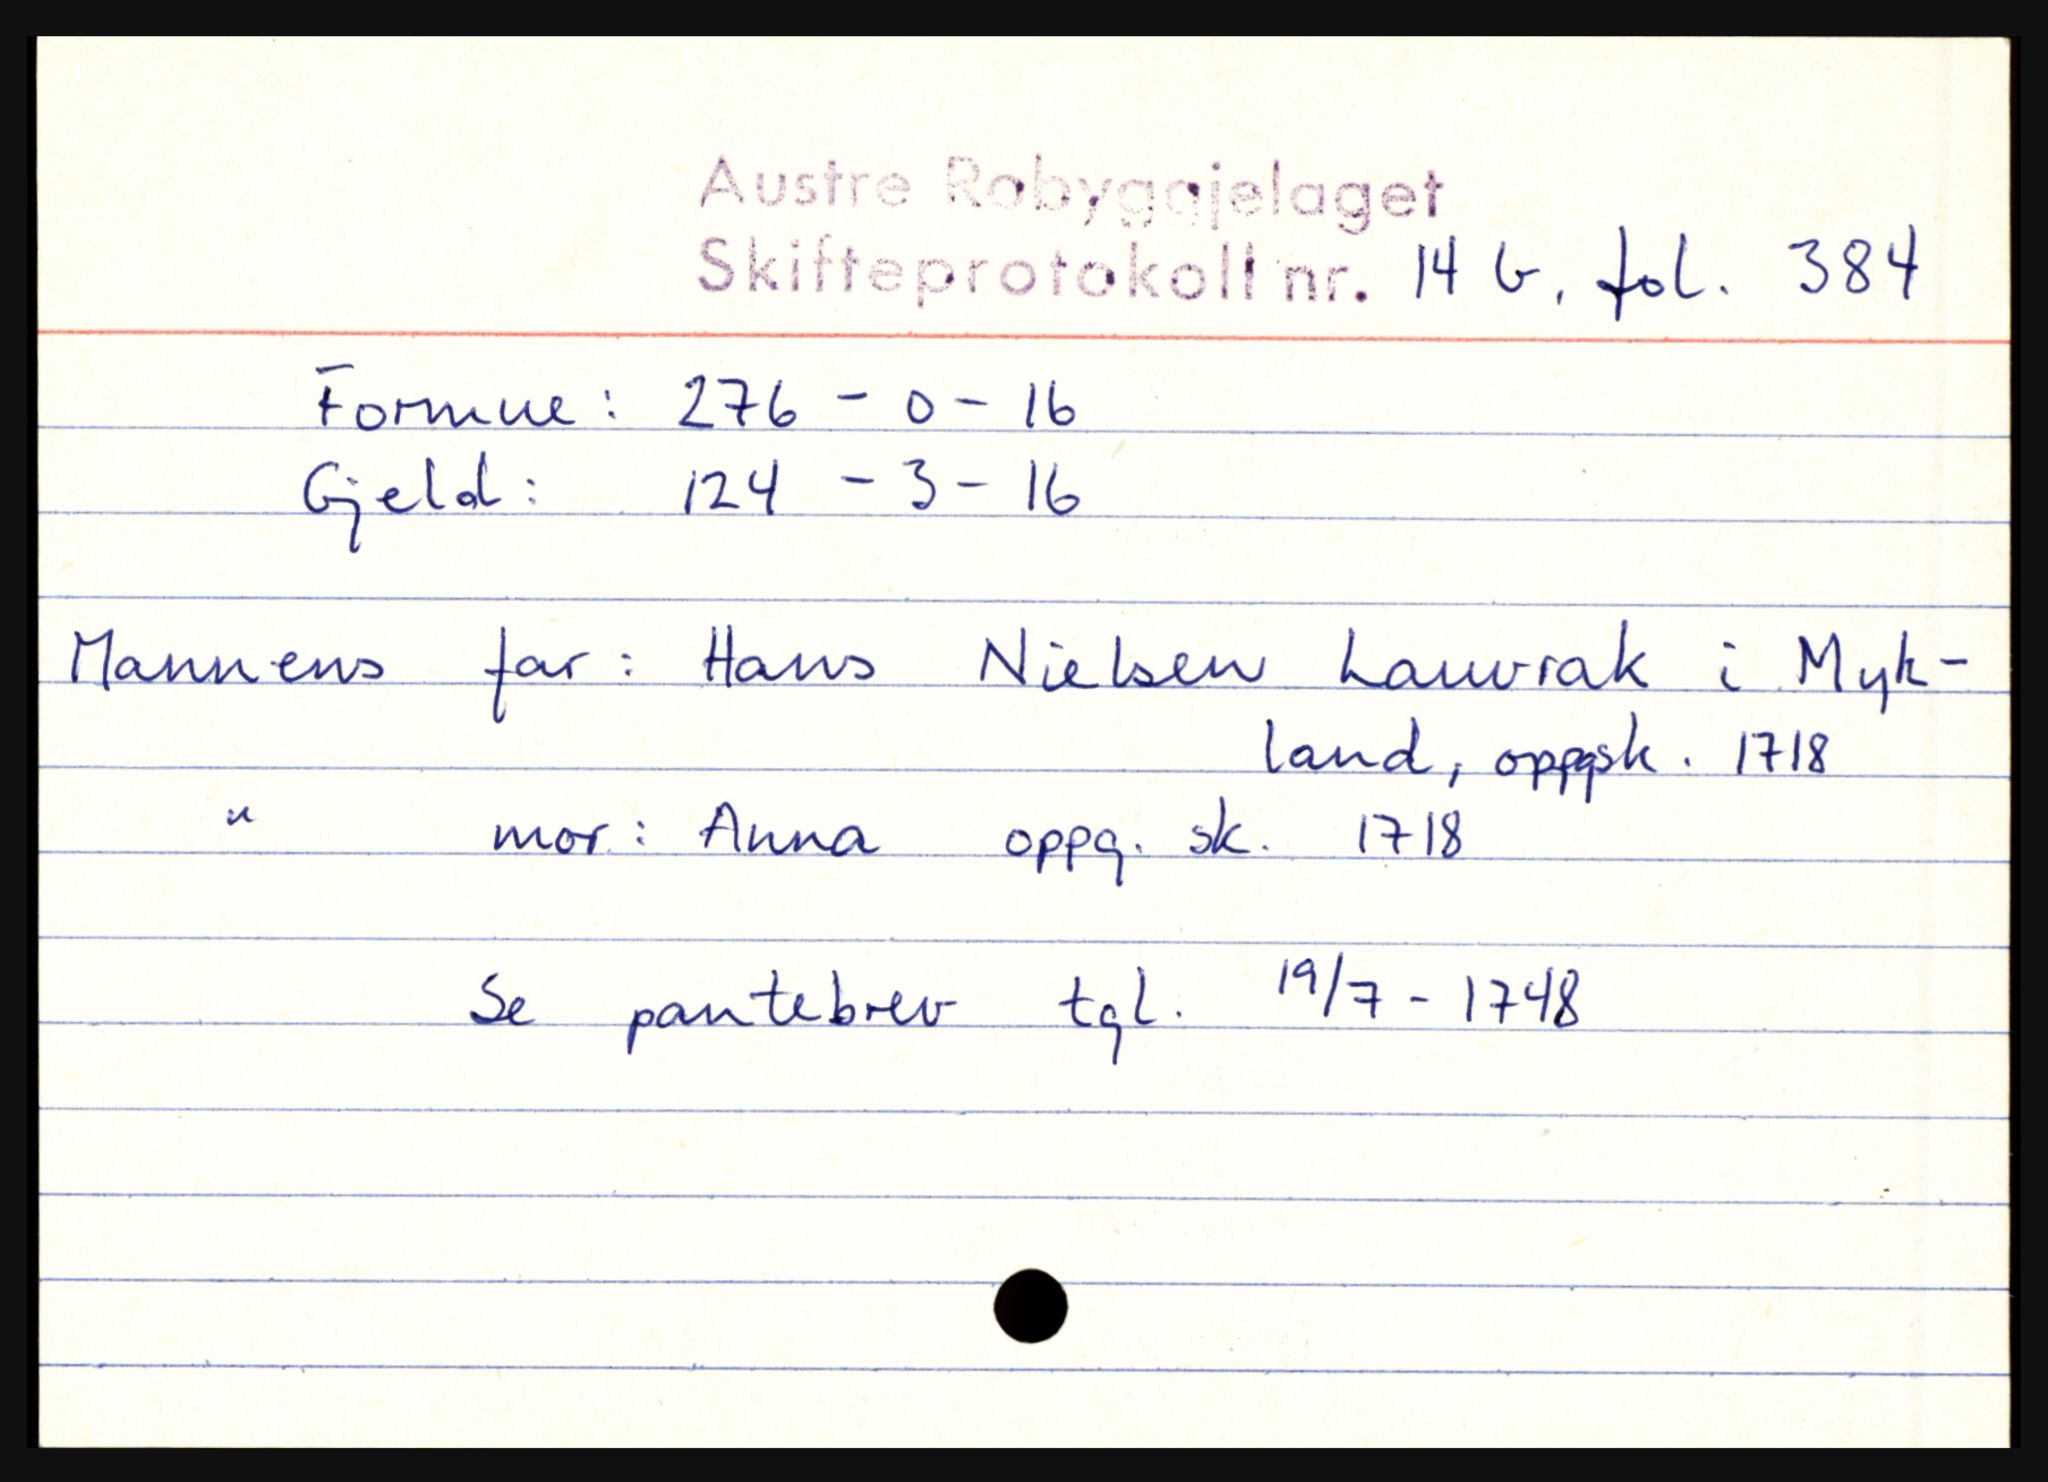 Austre Robyggjelaget
Skifteprotokoll nr. 14 b, fol. 384
Formue: 276 - 0 - 16
Gjeld: 124 - 3 - 16
Mannens far: Hans Nielsen Lauvrak i Myk-
land, oppg sk. 1718
" mor: Anna oppg. sk. 1718
Se pantebrev tgl. 19/7 - 1748